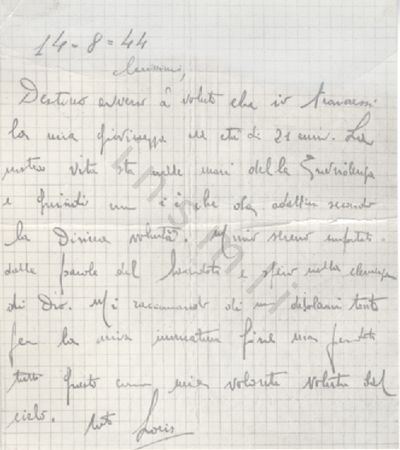 14-8-44
Carissimi,
Destino avverso à voluto che io troncassi
la mia giovinezza in età di 21 anni. La
nostra vita sta nelle mani della Provvidenza
e quindi non c'è che da adattarsi secondo
la Divina volontà. Mi sono
dalle parole del Sacerdote e spero nella clemenza
di Dio. Mi raccomando di non desolarvi tanto
per la mia immatura fine ma prendete
tutto questo come mia volontà voluta dal
cielo. Loris
INSMLI